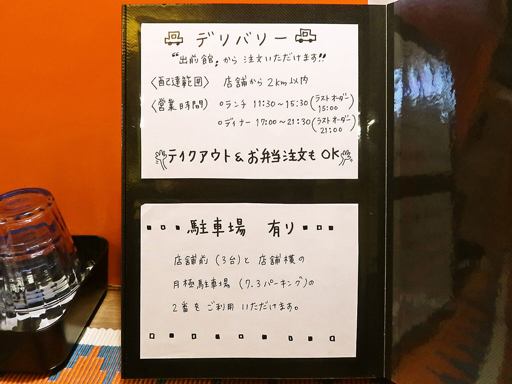 デリバリー
"出前館"から注文いただけます!!
〈配達範囲〉 店舗から2km以内
〈営業時間〉 ○ランチ 11:30~15:30(ラストオーダー 15:00)
○ディナー 17:00~21:30(ラストオーダー 21:00)
テイクアウト&お弁当注文もOK
駐車場 有り
店舗前(3台)と店舗横の
月極駐車場(7.3パーキング)の
2番をご利用いただけます。